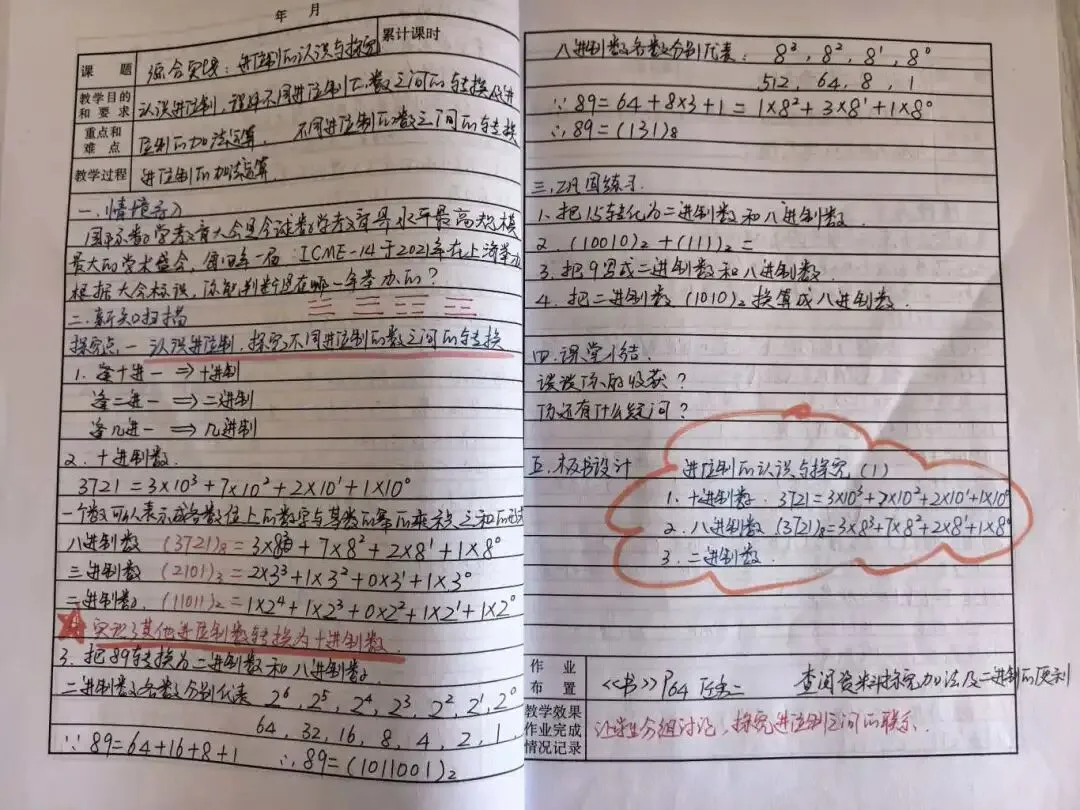 年 月
累计课时
课 题 综合实践：进位制的认识与探究
教学目的和要求 认识进位制，探究不同进位制的数之间的转换及进
重点和难点 位制的加法运算． 不同进位制的数之间的转换
教学过程 进位制的加法运算．
一．情境导入
国际数学教育大会是全球数学教育界水平最高、规模
最大的学术盛会，每四年一届．ICME-14于2021年在上海举办
根据大会标识，你能判断出是在哪一年举办的？
二．新知扫描
探究点一 认识进位制，探究不同进位制的数之间的转换
1．逢十进一 ⇒十进制
逢二进一 ⇒二进制
逢几进一 ⇒ 几进制
2．十进制数．
3721=3×10³+7×10²+2×10¹+1×10⁰
一个数可以表示成各数位上的数字与基数的幂的乘积之和的形式
八进制数 (3721)₈=3×8³+7×8²+2×8¹+1×8⁰
三进制数 (2101)₃=2×3³+1×3²+0×3¹+1×3⁰
二进制数．(11011)₂=1×2⁴+1×2³+0×2²+1×2¹+1×2⁰
实现了其他进位制数转换为十进制数．
3．把89转换为二进制数和八进制数．
二进制数各数分别代表 2⁶，2⁵，2⁴，2³，2²，2¹，2⁰
64，32，16，8，4，2，1．
∵89=64+16+8+1 ∴89=(1011001)₂
八进制数各数分别代表： 8³，8²，8¹，8⁰
512，64，8，1
∵89=64+8×3+1=1×8²+3×8¹+1×8⁰
∴89=(131)₈
三．巩固练习．
1．把15转化为二进制数和八进制数．
2．(10010)₂+(111)₂=
3．把9写成二进制数和八进制数
4．把二进制数(1010)₂换算成八进制数．
四．课堂小结．
谈谈你的收获？
你还有什么疑问？
五．板书设计 进位制的认识与探究（1）
1．十进制数．3721=3×10³+7×10²+2×10¹+1×10⁰
2．八进制数 (3721)₈=3×8³+7×8²+2×8¹+1×8⁰
3．二进制数．
作业布置 《书》P64 查阅资料探究加法及二进制的
教学效果作业完成情况记录 让学生分组讨论，探究进位制之间的联系．